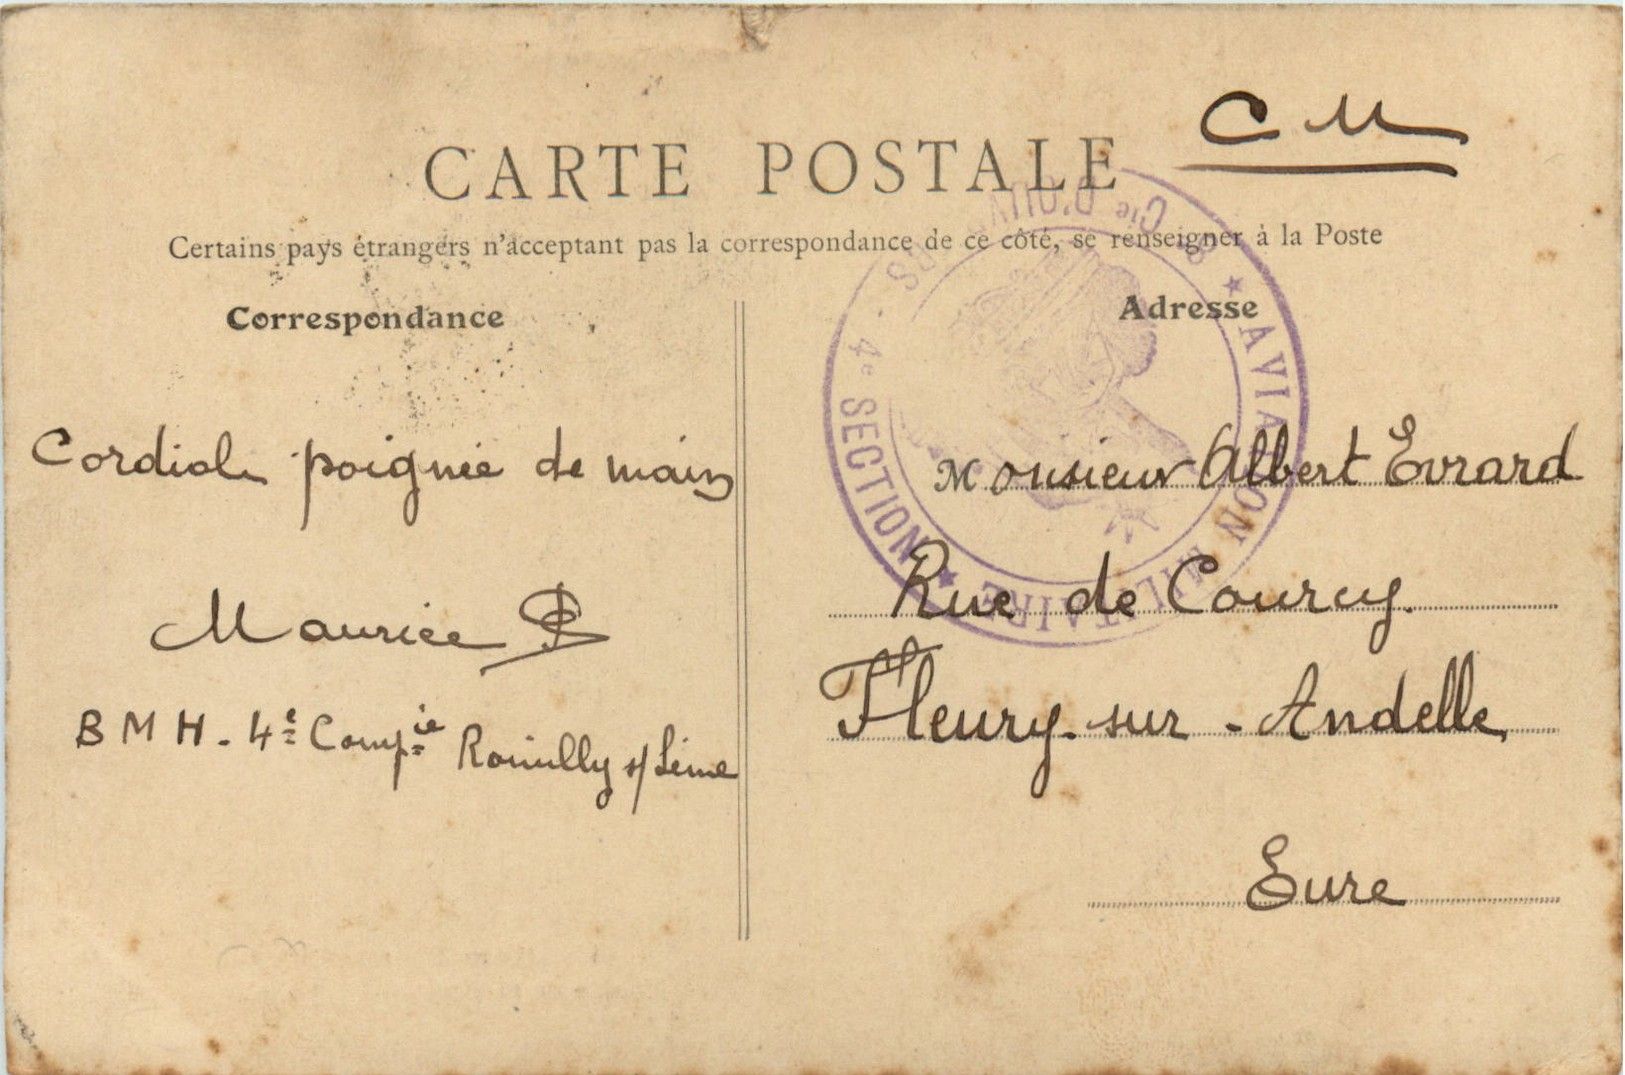 C M
CARTE POSTALE
Certains pays étrangers n'acceptant pas la correspondance de ce côté, se renseigner à la Poste
Correspondance
Cordiale poignée de main
Maurice
B M H - 4e Compie Romilly s/ Seine
Adresse
Monsieur Albert Evrard
Rue de Courcy.
Fleury-sur-Andelle
Eure
★ AVIATION MILITAIRE ★
4e SECTION
Cie D'OUV